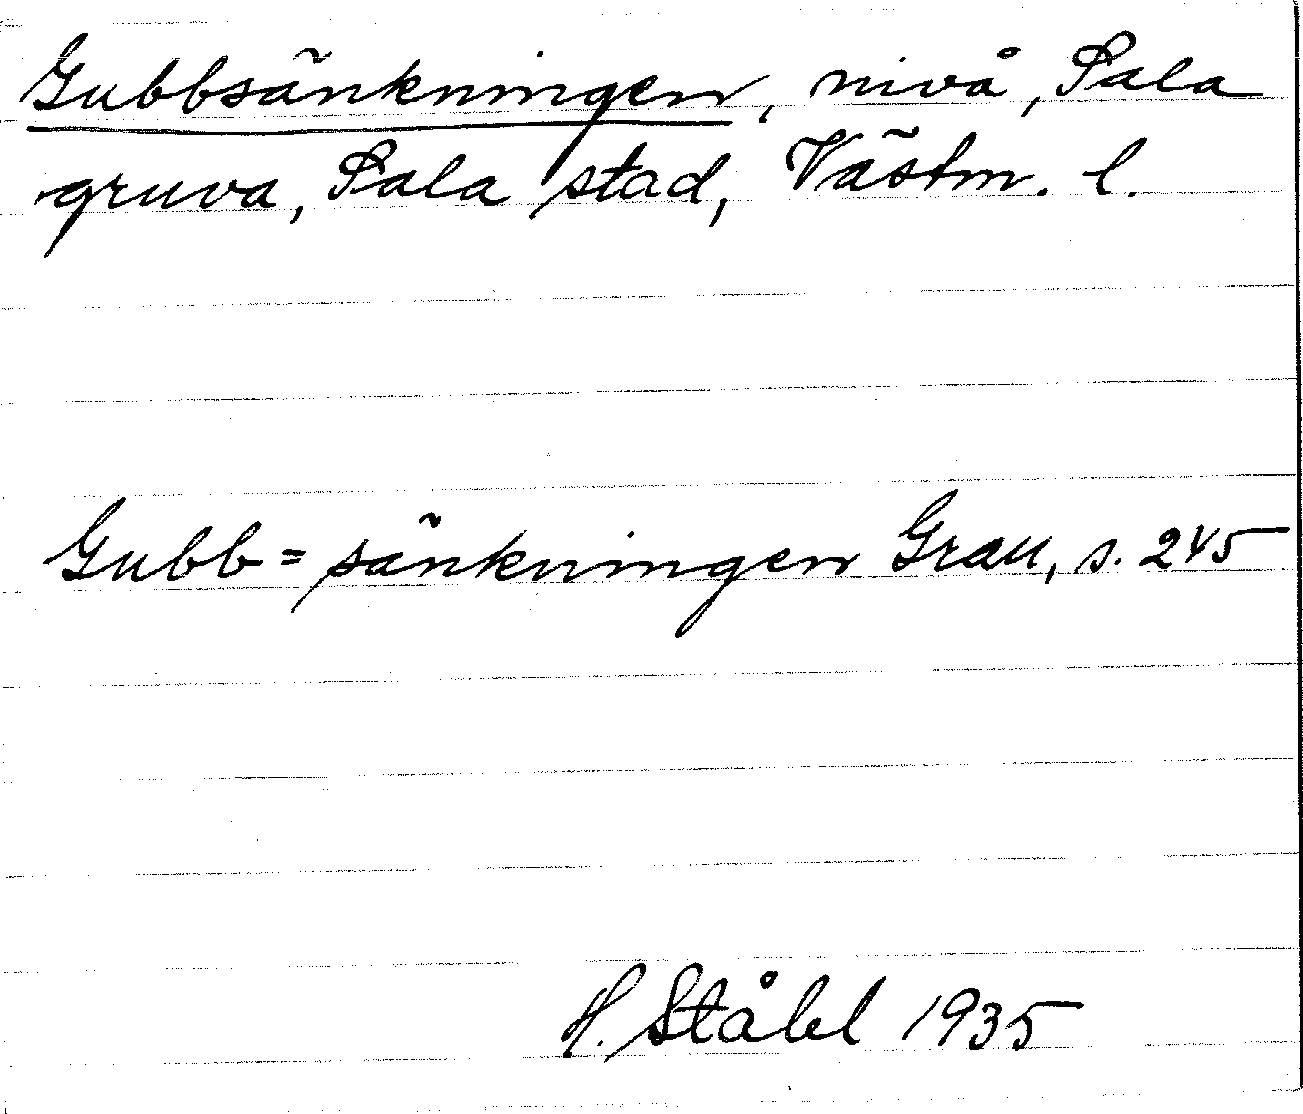 Gubbsänkningen, nivå, Sala
gruva, Sala stad, Västm. l.
Gubb=sänkningen Grau, s. 245
H. Ståhl 1935